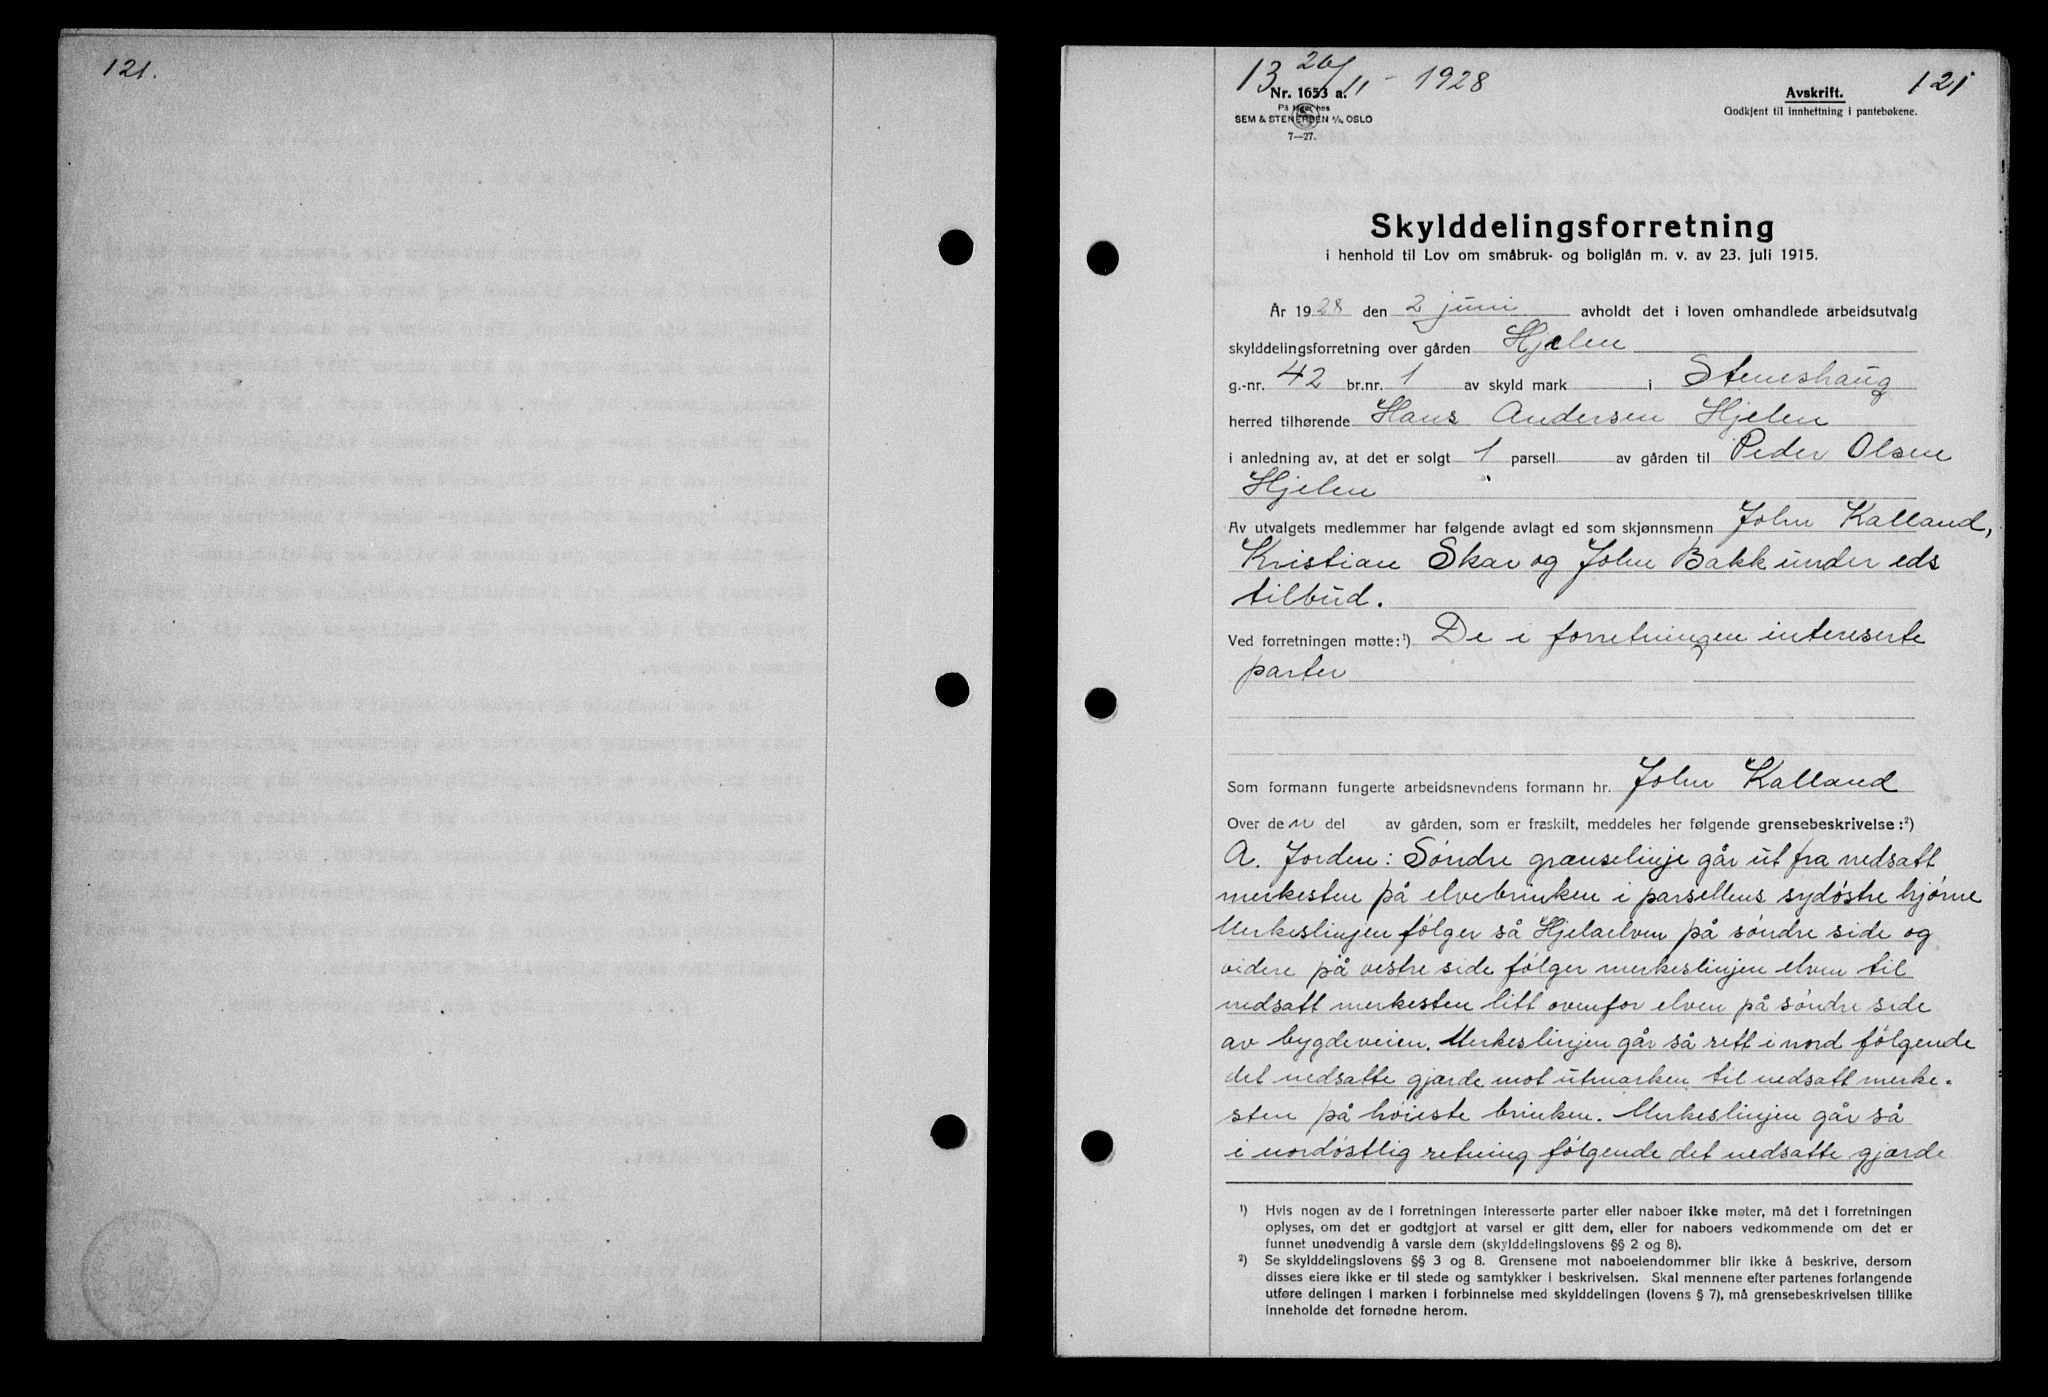 121.
13 26/11 - 1928
121
Nr. 1653 a.
På lager hos
SEM & STENERSEN A/S, OSLO
7—27.
Avskrift.
Godkjent til innheftning i pantebøkene.
Skylddelingsforretning
i henhold til Lov om småbruk- og boliglån m. v. av 23. juli 1915.
År 1928 den 2 juni avholdt det i loven omhandlede arbeidsutvalg
skylddelingsforretning over gården Hjelen
g.-nr. 42 br.nr. 1 av skyld mark i Stemshaug
herred tilhørende Hans Andersen Hjelen
i anledning av, at det er solgt 1 parsell av gården til Peder Olsen
Hjelen
Av utvalgets medlemmer har følgende avlagt ed som skjønnsmenn John Kalland,
Kristian Skar og John Bakk under eds
tilbud.
Ved forretningen møtte:¹) De i forretningen intereserte
parter
Som formann fungerte arbeidsnevndens formann hr. John Kalland
Over den del av gården, som er fraskilt, meddeles her følgende grensebeskrivelse:²)
A. Jorden: Søndre grænselinje går ut fra nedsatt
merkesten på elvebrinken i parsellens sydøstre hjørne
Merkeslinjen følger så Hjelaelven på søndre side og
videre på vestre side følger merkeslinjen elven til
nedsatt merkesten litt ovenfor elven på søndre side
av bygdeveien. Merkeslinjen går så rett i nord følgende
det nedsatte gjærde mot utmarken til nedsatt merke-
sten på høieste brinken. Merkeslinjen går så
i nordøstlig retning følgende det nedsatte gjærde
¹) Hvis nogen av de i forretningen interesserte parter eller naboer ikke møter, må det i forretningen
oplyses, om det er godtgjort at varsel er gitt dem, eller for naboers vedkommende om det er
funnet unødvendig å varsle dem (skylddelingslovens §§ 2 og 8).
²) Se skylddelingslovens §§ 3 og 8. Grensene mot naboeiendommer blir ikke å beskrive, dersom
disses eiere ikke er til stede og samtykker i beskrivelsen. Skal mennene efter partenes forlangende
utføre delingen i marken i forbinnelse med skylddelingen (lovens § 7), må grensebeskrivelsen tillike
inneholde det fornødne herom.